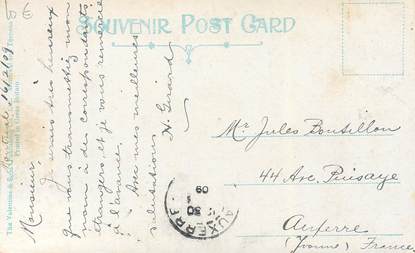 SOUVENIR POST CARD
The Valentine & Sons
Printed in Great Britain
Monsieur,
Je serais très heureux
que vous transmettiez mon
nom à des correspondants
étrangers et je vous remercie
à l'avance.
Avec mes meilleures
salutations
H. Girard
Mr Jules Boutillon
44 Ave. Puisaye
Auxerre
(Yonne) France
AUXERRE
30
09